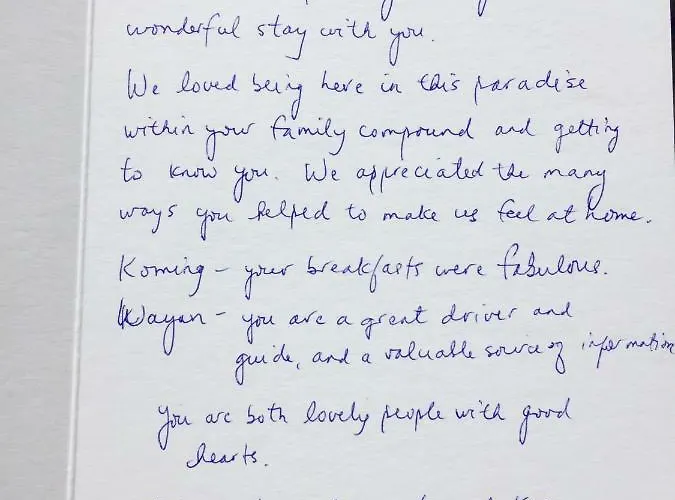 wonderful stay with you.
We loved being here in this paradise
within your family compound and getting
to know you. We appreciated the many
ways you helped to make us feel at home.
Koming - your breakfasts were fabulous.
Wayan - you are a great driver and
guide, and a valuable source of information
You are both lovely people with good
hearts.